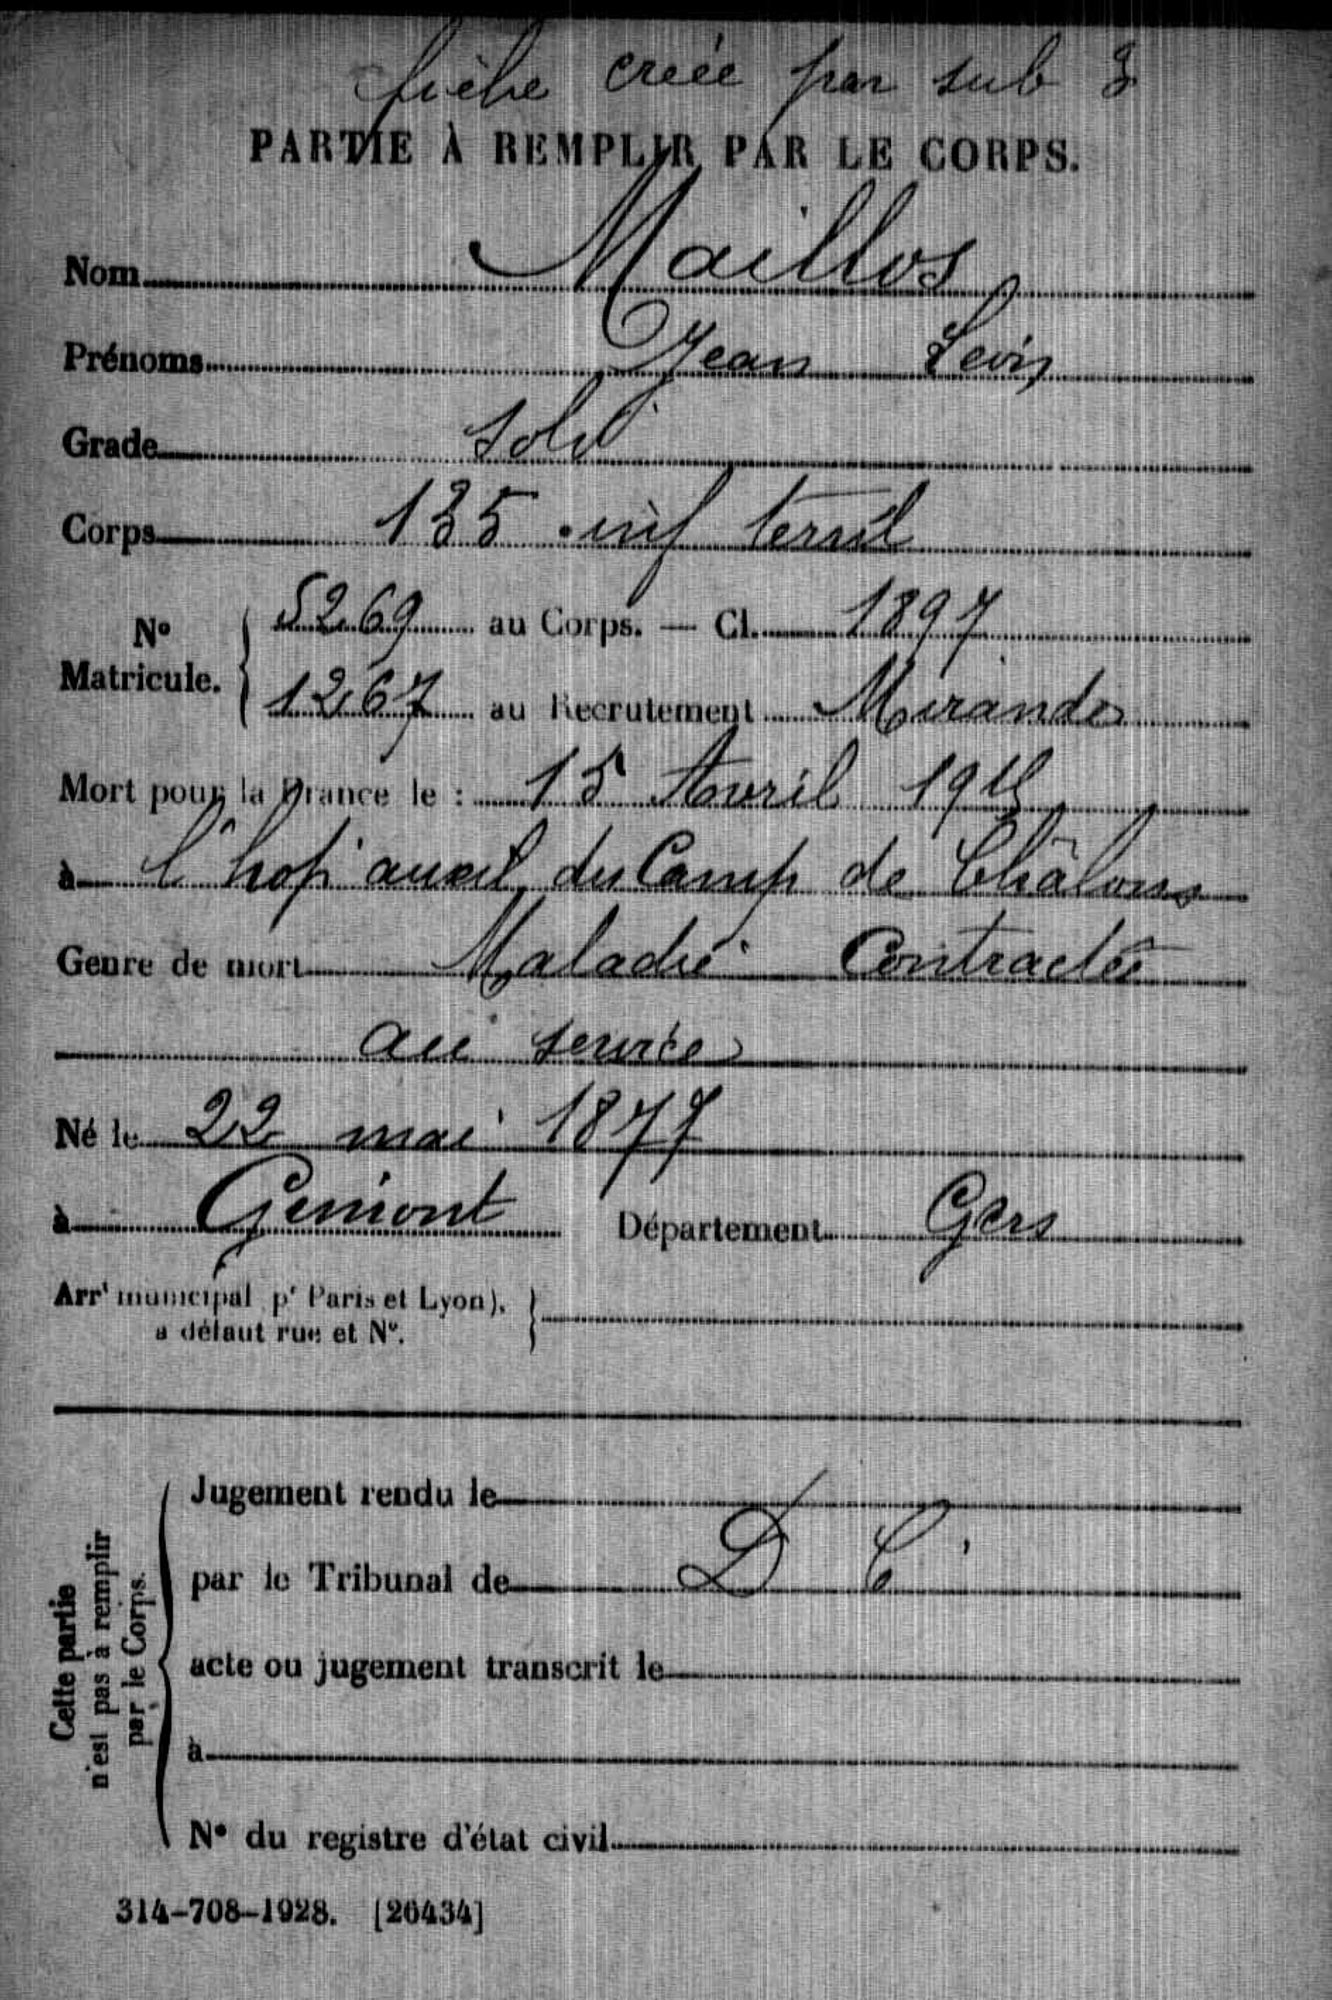 fiche créée par sub 3
PARTIE À REMPLIR PAR LE CORPS.
Nom Maillos
Prénoms Jean
Grade Sold
Corps 135 inf territ
No Matricule. { 5269 au Corps. — Cl. 1897
1267 au Recrutement Mirande
Mort pour la France le : 15 Avril
à l'hop auxil du Camp de Châlons
Genre de mort Maladie Contractée
au service
Né le 22 mai 1877
à Gimont Département Gers
Arrt municipal pr Paris et Lyon),
a défaut rue et No. }
Cette partie
n'est pas à remplir
par le Corps.
Jugement rendu le
par le Tribunal de D C
acte ou jugement transcrit le
à
No du registre d'état civil
314-708-1928. [26434]